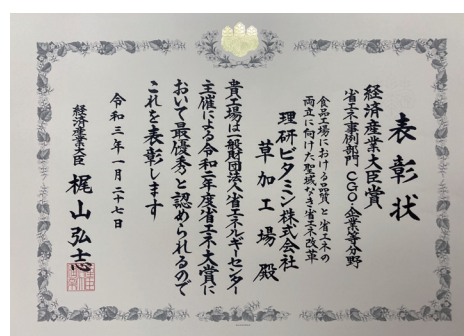 表彰状
経済産業大臣賞
省エネ事例部門 CGO・企業等分野
食品工場における品質と省エネの
両立に向けた聖域なき省エネ改革
理研ビタミン株式会社
草加工場 殿
貴工場は一般財団法人省エネルギーセンター
主催による令和二年度省エネ大賞に
おいて最優秀と認められるので
これを表彰します
令和三年一月二十七日
経済産業大臣 梶山弘志